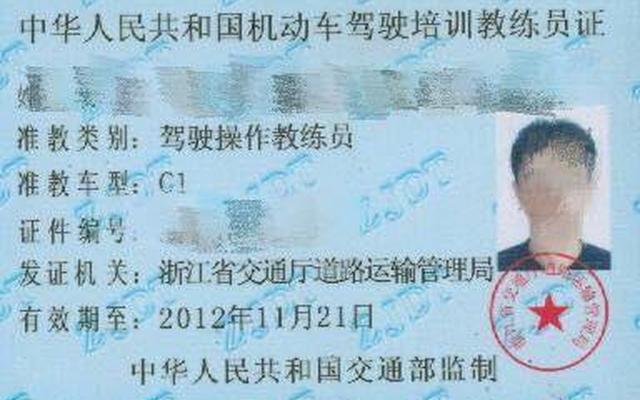 中华人民共和国机动车驾驶培训教练员证
姓
准教类别：驾驶操作教练员
准教车型：C1
证件编号
发证机关：浙江省交通厅道路运输管理局
有效期至：2012年11月21日
中华人民共和国交通部监制